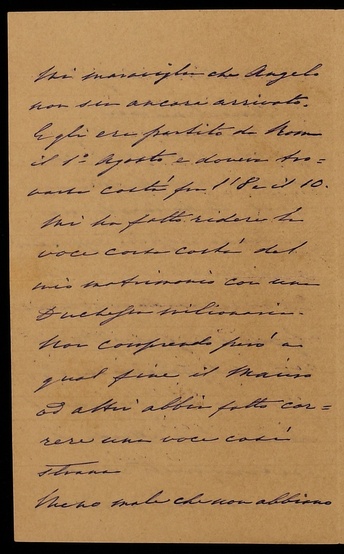 Mi maraviglia che Angelo
non sia ancora arrivato.
Egli era partito da Roma
il 1º Agosto e doveva tro=
varsi costà fra l'8 e il 10.
Mi ha fatto ridere la
voce corsa costà del
mio matrimonio con una
Duchessa milionaria.
Non comprendo però a
qual fine il
ed altri abbia fatto cor=
rere una voce così
strana
Meno male che non abbiano